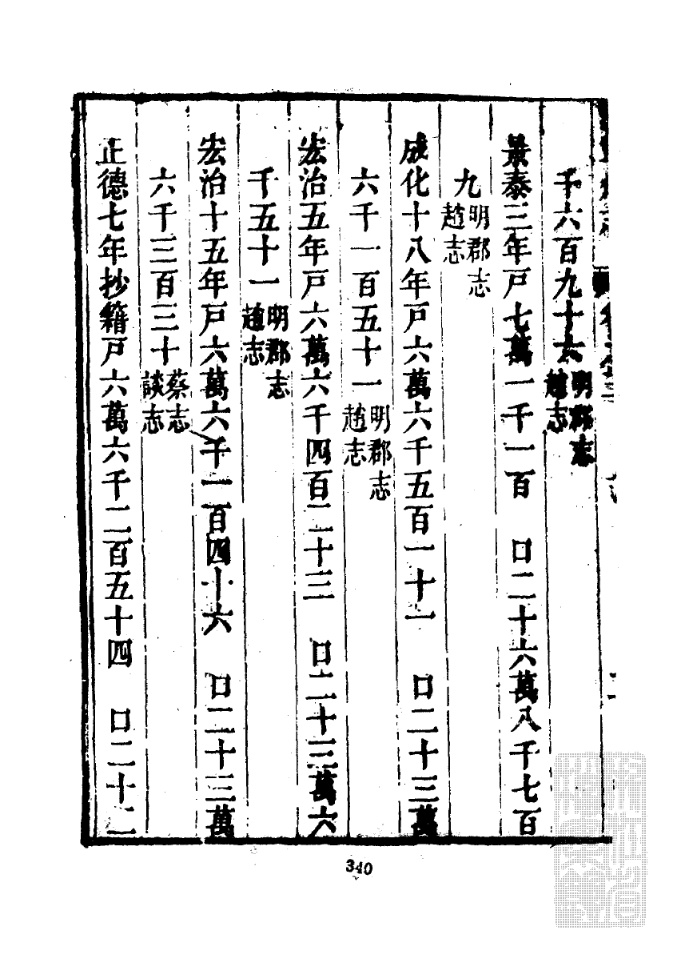 千六百九十六明郡志趙志
景泰三年戸七萬一千一百　口二十六萬八千七百
九明郡志趙志
成化十八年戸六萬六千五百一十一　口二十三萬
六千一百五十一明郡志趙志
宏治五年戸六萬六千四百二十三　口二十三萬六
千五十一明郡志趙志
宏治十五年戸六萬六千一百四十六　口二十三萬
六千三百三十蔡志談志
正德七年抄籍戸六萬六千二百五十四　口二十二
340